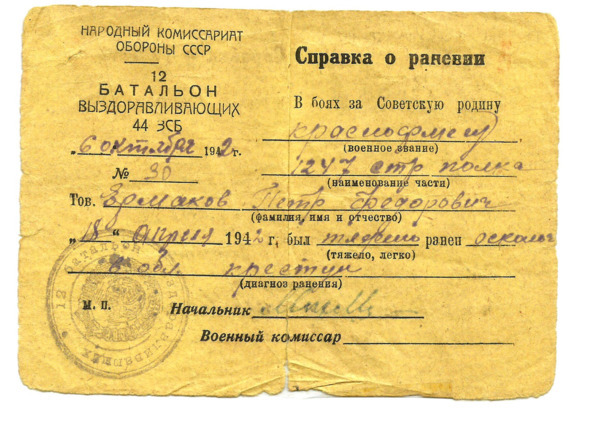 НАРОДНЫЙ КОМИССАРИАТ
ОБОРОНЫ СССР
12
БАТАЛЬОН
ВЫЗДОРАВЛИВАЮЩИХ
44 ЗСБ
„6 октября 1942 г.
№ 30
Справка о ранении
В боях за Советскую родину
красноармеец
(военное звание)
1247 стр полка
(наименование части)
Тов. Ермаков Петр Федорович
(фамилия, имя и отчество)
„18" апреля 1942 г. был тяжело ранен осколк
(тяжело, легко)
в обл крестца
(диагноз ранения)
М. П.
Начальник
Военный комиссар